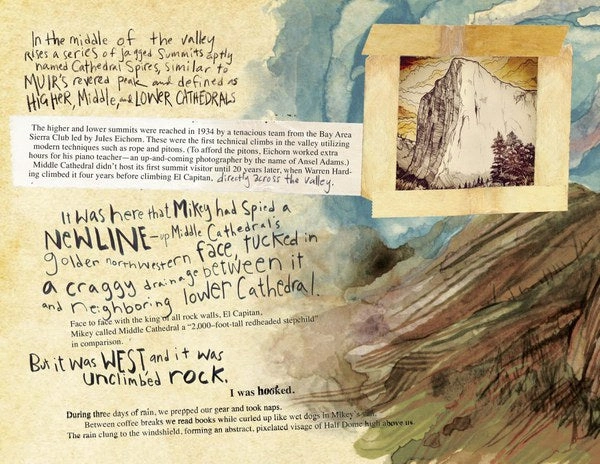 In the middle of the valley
rises a series of jagged summits aptly
named Cathedral Spires, similar to
MUIR'S revered peak and defined as
HIGHER, Middle, and LOWER CATHEDRALS
The higher and lower summits were reached in 1934 by a tenacious team from the Bay Area
Sierra Club led by Jules Eichorn. These were the first technical climbs in the valley utilizing
modern techniques such as rope and pitons. (To afford the pitons, Eichorn worked extra
hours for his piano teacher—an up-and-coming photographer by the name of Ansel Adams.)
Middle Cathedral didn't host its first summit visitor until 20 years later, when Warren Hard-
ing climbed it four years before climbing El Capitan, directly across the valley.
It was here that Mikey had spied a
NEW LINE—up Middle Cathedral's
golden northwestern face, tucked in
a craggy drainage between it
and neighboring lower Cathedral.
Face to face with the king of all rock walls, El Capitan,
Mikey called Middle Cathedral a “2,000-foot-tall redheaded stepchild”
in comparison.
But it was WEST, and it was
unclimbed rock.
I was hooked.
During three days of rain, we prepped our gear and took naps.
Between coffee breaks we read books while curled up like wet dogs in Mikey's van.
The rain clung to the windshield, forming an abstract, pixelated visage of Half Dome high above us.